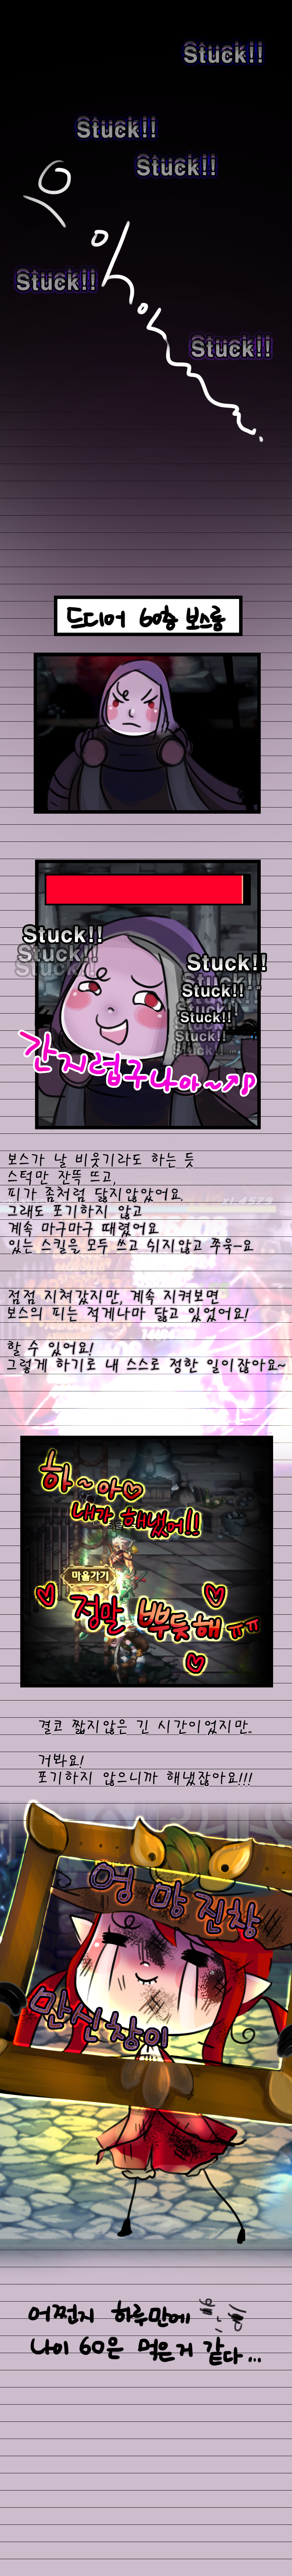 Stuck!!
Stuck!!
Stuck!!
으
아
Stuck!!
아
Stuck!!
드디어 60층 보스룸
Stuck!!
Stuck!!
Stuck!!
Stuck!!
Stuck!!
Stuck!!
간지럽구나아~♪
보스가 날 비웃기라도 하는 듯
스턱만 잔뜩 뜨고,
피가 좀처럼 닳지않았어요.
그래도 포기하지 않고
계속 마구마구 때렸어요
있는 스킬을 모두 쓰고 쉬지않고 쭈욱-요
점점 지쳐갔지만, 계속 지켜보면
보스의 피는 적게나마 닳고 있었어요!
할 수 있어요!
그렇게 하기로 내 스스로 정한 일이잖아요~
하~아♡
내가 해냈어!!
마을가기
♡ 정말 뿌듯해 ㅠㅠ ♡
♡
결코 짧지않은 긴 시간이었지만..
거봐요!
포기하지 않으니까 해냈잖아요!!!
엉망진창
만신창이
어쩐지 하루만에
나이 60은 먹은거 같다...